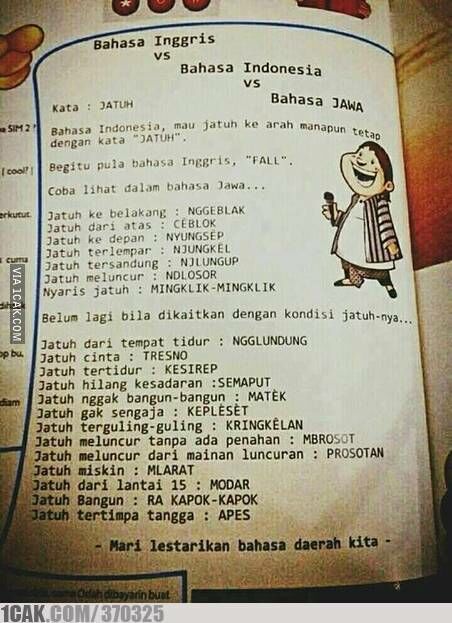 Bahasa Inggris
vs
Bahasa Indonesia
vs
Bahasa JAWA
Kata : JATUH
Bahasa Indonesia, mau jatuh ke arah manapun tetap
dengan kata "JATUH".
Begitu pula bahasa Inggris, "FALL".
Coba lihat dalam bahasa Jawa...
Jatuh ke belakang : NGGEBLAK
Jatuh dari atas : CÈBLOK
Jatuh ke depan : NYUNGSEP
Jatuh terlempar : NJUNGKEL
Jatuh tersandung : NJLUNGUP
Jatuh meluncur : NDLOSOR
Nyaris jatuh : MINGKLIK-MINGKLIK
Belum lagi bila dikaitkan dengan kondisi jatuh-nya...
Jatuh dari tempat tidur : NGGLUNDUNG
Jatuh cinta : TRESNO
Jatuh tertidur : KESIREP
Jatuh hilang kesadaran :SEMAPUT
Jatuh nggak bangun-bangun : MATÈK
Jatuh gak sengaja : KEPLÈSÈT
Jatuh terguling-guling : KRINGKÈLAN
Jatuh meluncur tanpa ada penahan : MBROSOT
Jatuh meluncur dari mainan luncuran : PROSOTAN
Jatuh miskin : MLARAT
Jatuh dari lantai 15 : MODAR
Jatuh Bangun : RA KAPOK-KAPOK
Jatuh tertimpa tangga : APES
- Mari lestarikan bahasa daerah kita -
SIM 2 ?
cool?
cuma
bu,
diam
Odah dibayarin buat
VIA 1CAK.COM
1CAK.COM/370325